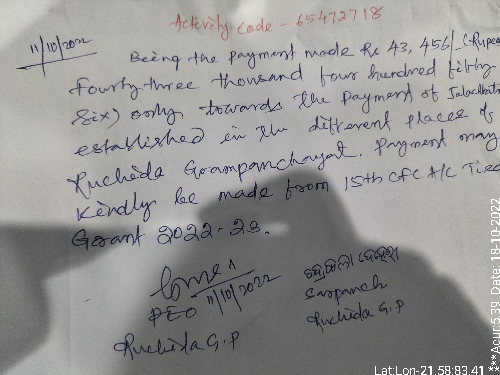 Activity code - 65472718
11/10/2022
Being the payment made Rs 43,456/- (Rupees
fourty three thousand four hundred fifty
Six) only towards the payment of
established in the different places of
Ruchida Grampanchayat. Payment may
kindly be made from 15th CFC A/C Tied
Grant 2022-23.
11/10/2022
PEO
Ruchida G.P
Sarpanch
Ruchida G.P
Lat:Lon-21.58:83.41
***Acur:5.39 Date:18-10-2022